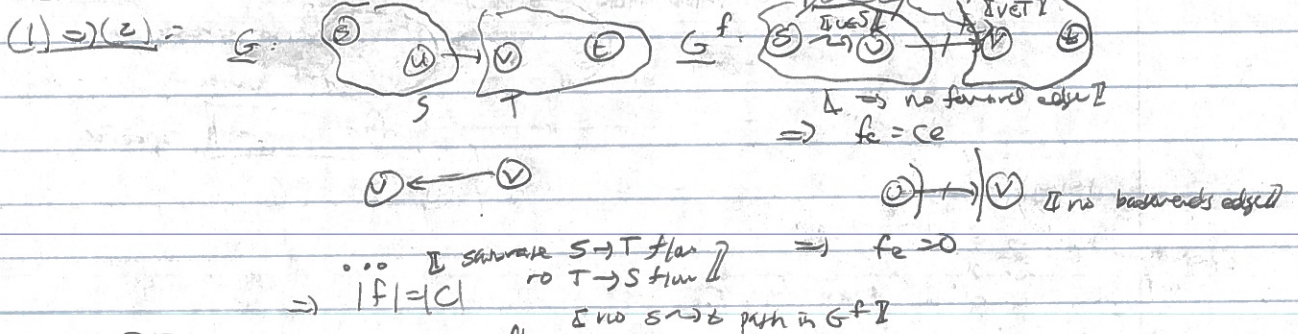 (1) ⇒ (2): G: s u v t G^f: s ⟿ u v t ⟦u∈S⟧ ⟦v∈T⟧
S T ⟦ ⇒ no forward edge⟧
⇒ fe = ce
u v u v ⟦no backwards edge⟧
... ⟦ saturate S→T flow ⇒ fe = 0
no T→S flow⟧
⇒ |f| = |C|
⟦no s⟿t path in G^f⟧